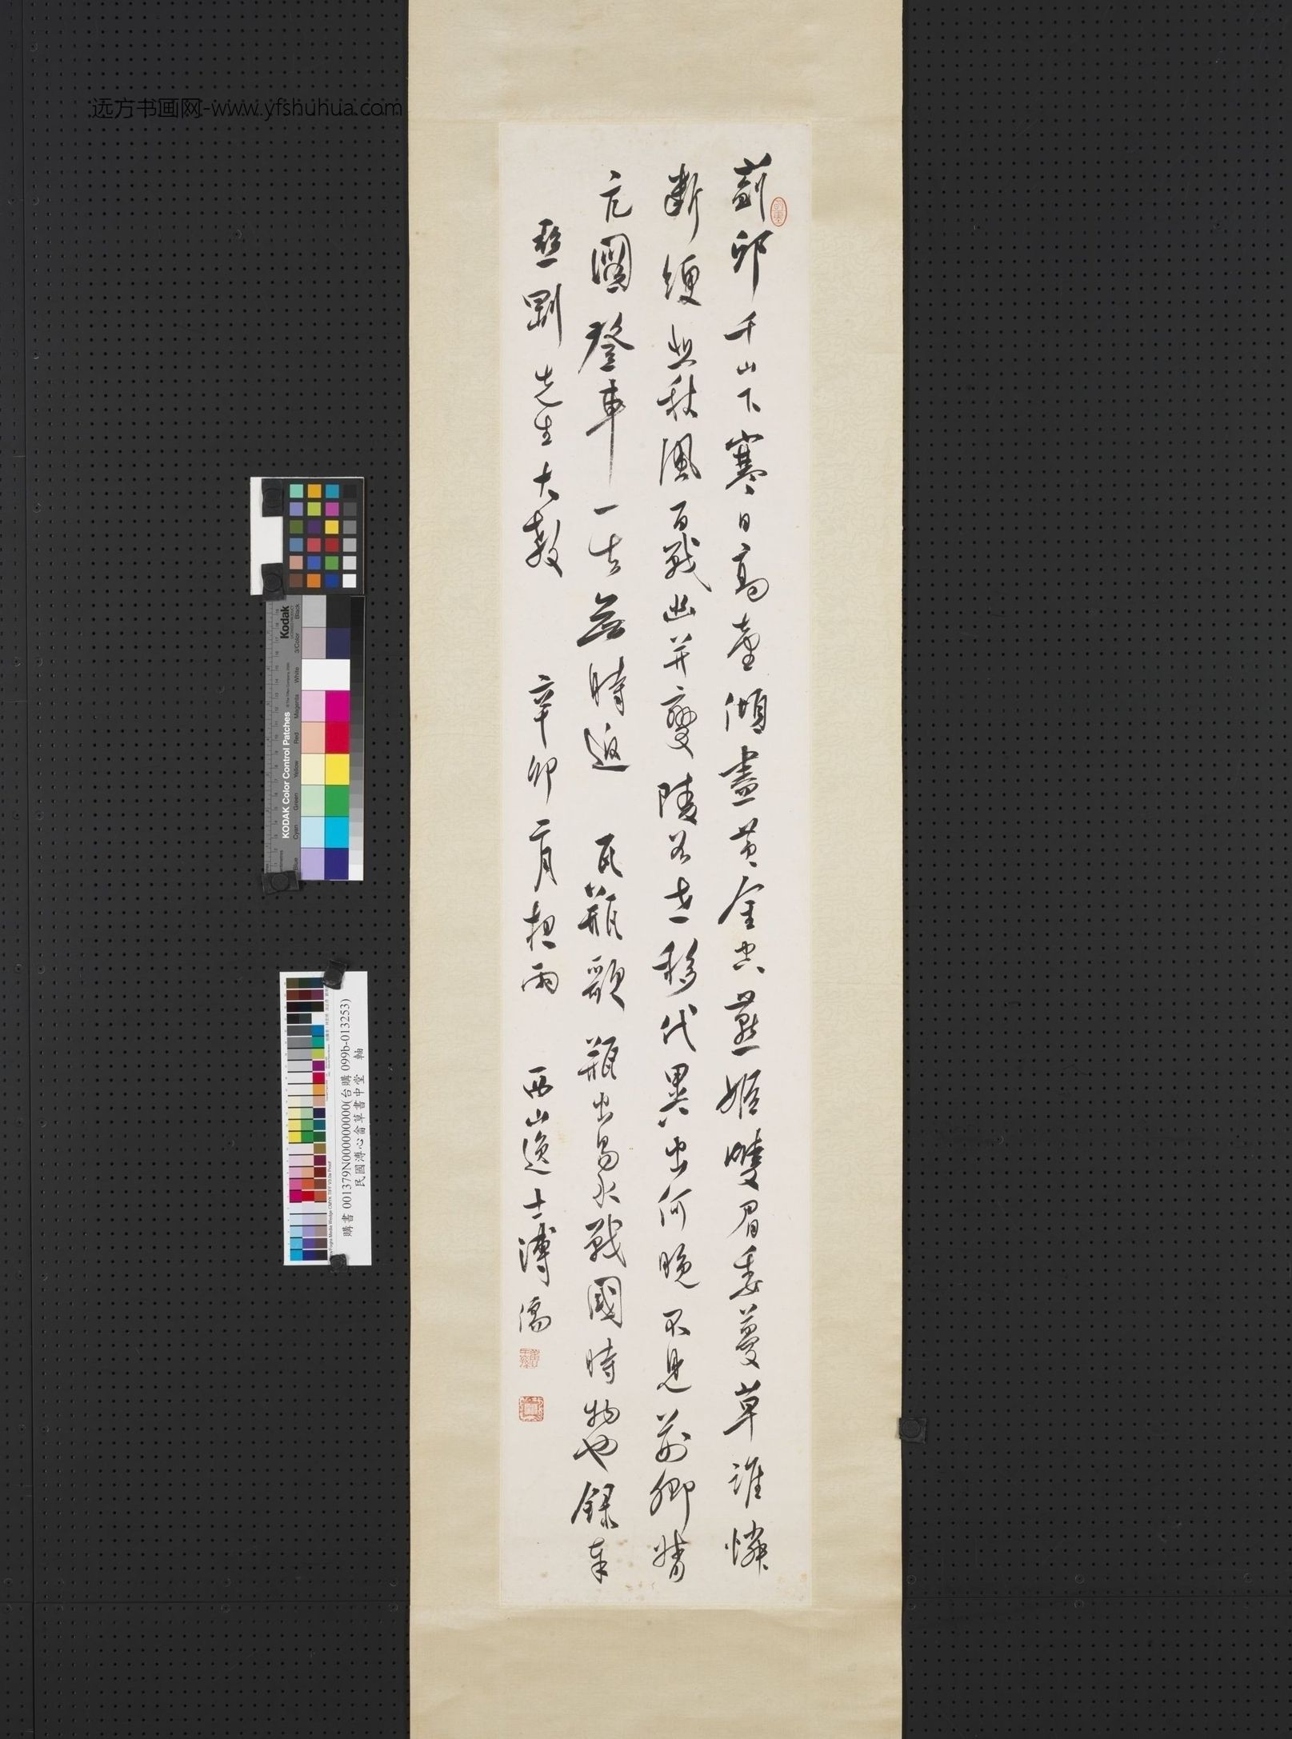 薊邱千山下寒日高臺傾盡黃金空燕姬雙眉委蔓草誰憐
斷綆悲秋風百戰幽并變陵谷世移代異出何晚不見荊卿
亢圖登車一去無時返 瓦瓶歌 瓶出易水戰國時物也錄奉
先生大教 辛卯二月穀雨 西山逸士溥儒
远方书画网-www.yfshuhua.com
Kodak
KODAK Color Control Patches
Black
3/Color
White
Magenta
Red
Yellow
Green
Cyan
Blue
購書 001379N000000000(台購 099b-013253)
民國溥心畬草書中堂 軸